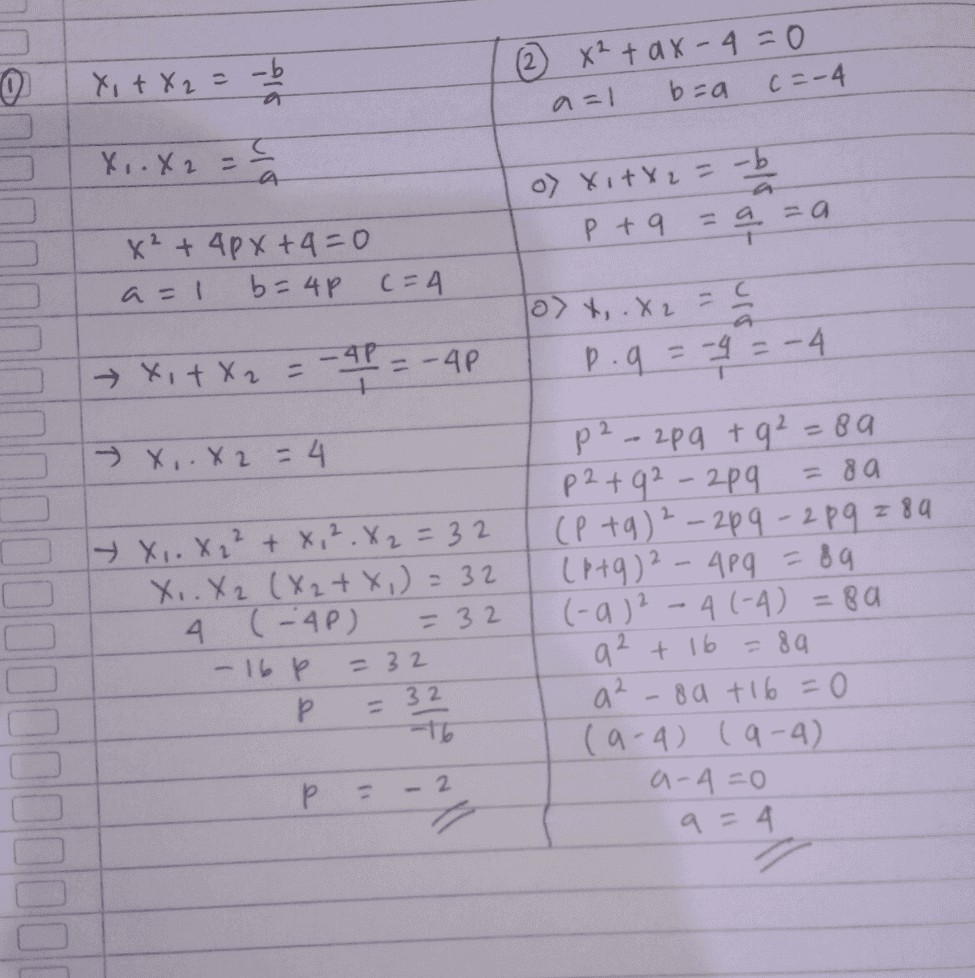 ① x₁ + x₂ = -b/a
x₁ . x₂ = c/a
x² + 4px + 4 = 0
a = 1 b = 4p c = 4
→ x₁ + x₂ = -4p/1 = -4p
→ x₁ . x₂ = 4
→ x₁ . x₂² + x₁² . x₂ = 32
x₁ . x₂ (x₂ + x₁) = 32
4 (-4p) = 32
-16 p = 32
p = 32/-16
p = -2
② x² + ax - 4 = 0
a = 1 b = a c = -4
o> x₁ + x₂ = -b/a
p + q = a/1 = a
o> x₁ . x₂ = c/a
p . q = -4/1 = -4
p² - 2pq + q² = 8a
p² + q² - 2pq = 8a
(p + q)² - 2pq - 2pq = 8a
(p+q)² - 4pq = 8a
(-a)² - 4 (-4) = 8a
a² + 16 = 8a
a² - 8a + 16 = 0
(a - 4) (a - 4)
a - 4 = 0
a = 4